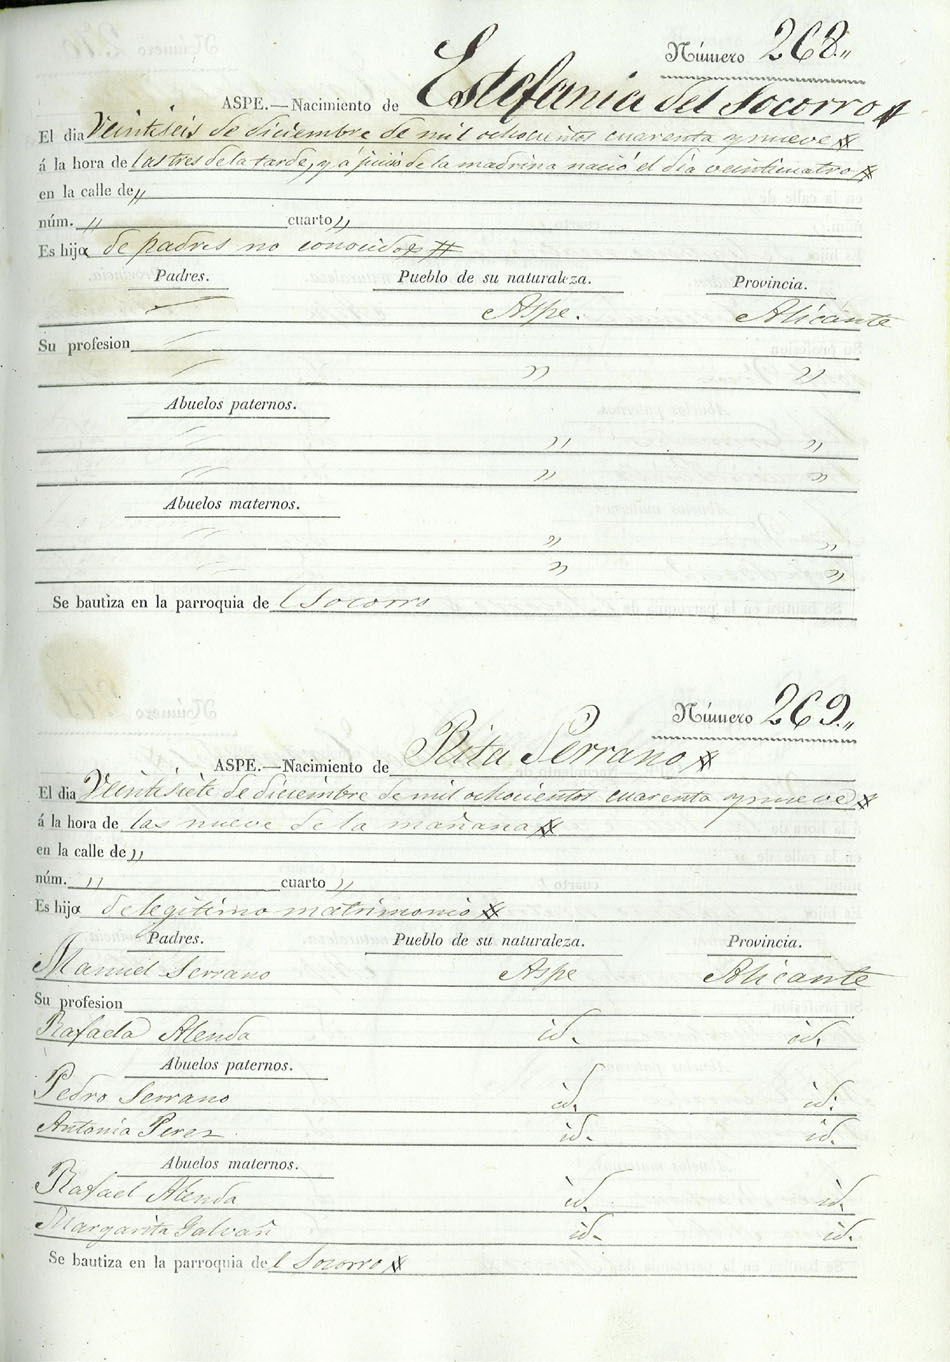 Número 268.,,
ASPE.—Nacimiento de Estefania del Socorro
El dia Veintiseis de diciembre de mil ochocientos cuarenta y nueve
á la hora de las tres de la tarde, y á juicio de la madrina nació el dia veinticuatro
en la calle de ,,
núm. ,, cuarto ,,
Es hija de padres no conocidos
Padres. Pueblo de su naturaleza. Provincia.
Aspe. Alicante
Su profesion
,, ,,
Abuelos paternos.
,, ,,
,, ,,
Abuelos maternos.
,, ,,
,, ,,
Se bautiza en la parroquia de l Socorro
Número 269.,,
ASPE.—Nacimiento de Rita Serrano
El dia Veintisiete de diciembre de mil ochocientos cuarenta y nueve
á la hora de las nueve de la mañana
en la calle de ,,
núm. ,, cuarto ,,
Es hija de legitimo matrimonio
Padres. Pueblo de su naturaleza. Provincia.
Manuel Serrano Aspe Alicante
Su profesion
Rafaela Alenda id. id.
Abuelos paternos.
Pedro Serrano id. id.
Antonia Perez id. id.
Abuelos maternos.
Rafael Alenda id. id.
Margarita Galvañ id. id.
Se bautiza en la parroquia de l Socorro